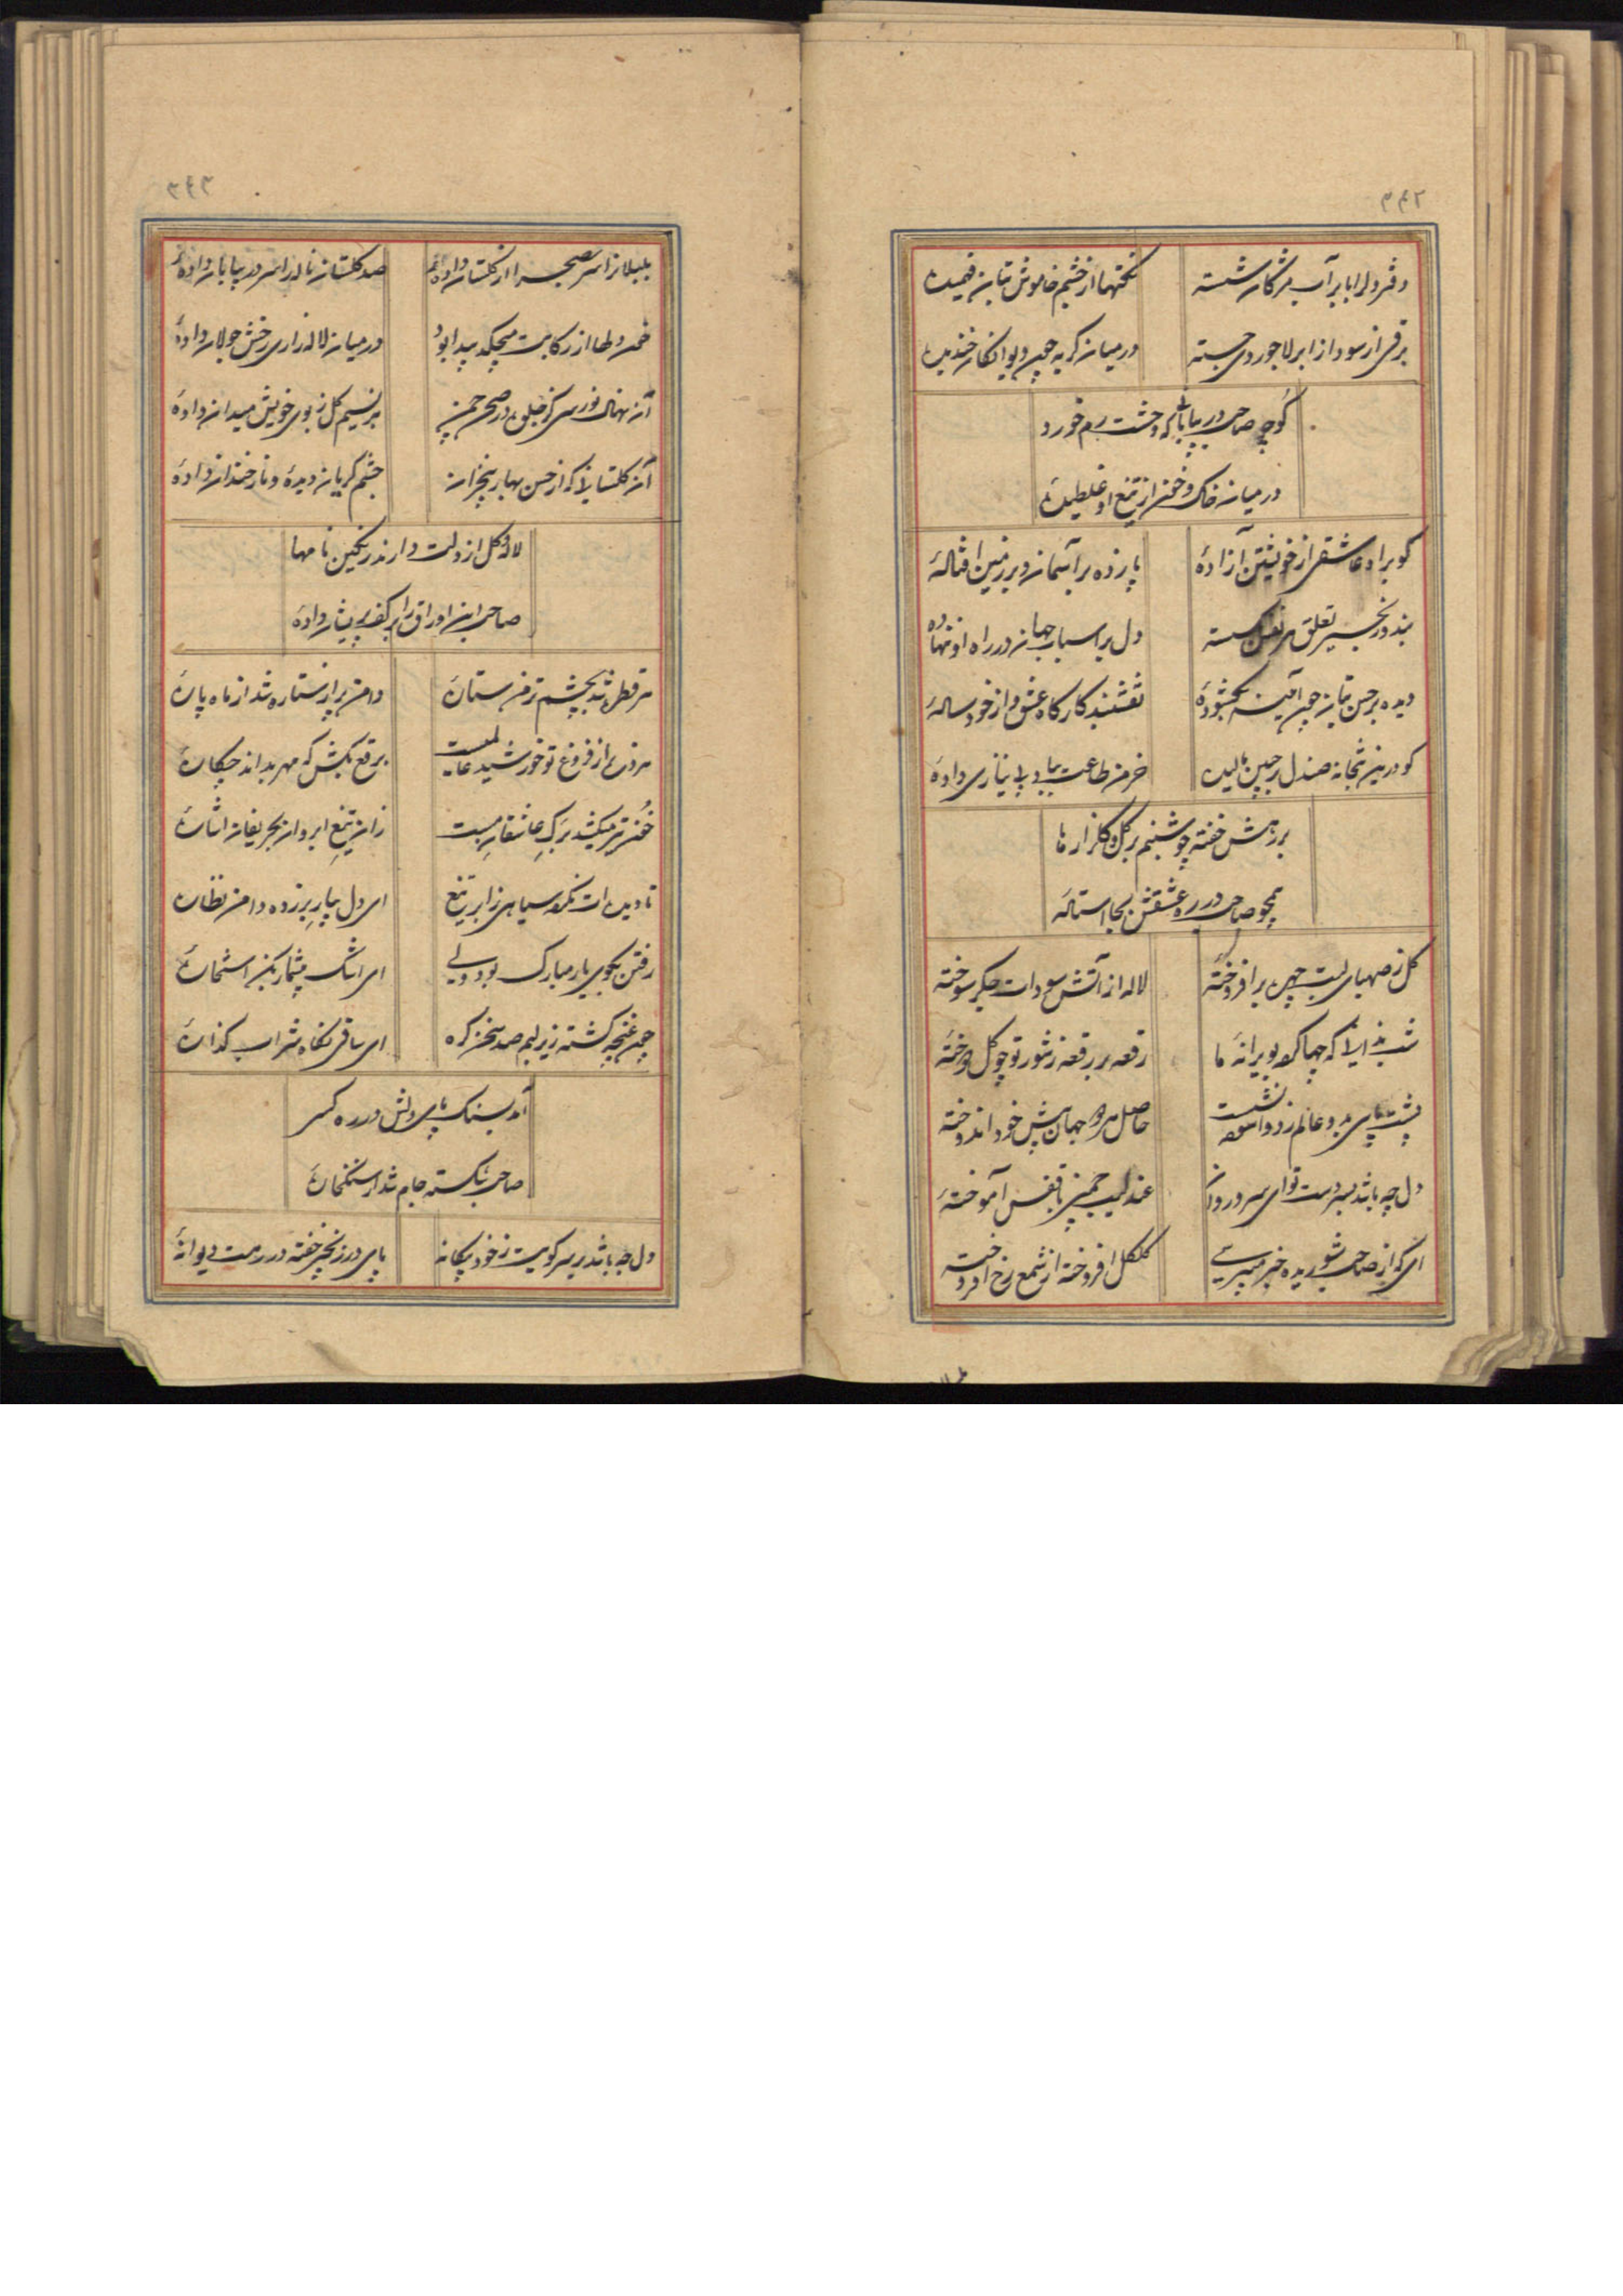 ۳۴۲
دفتر دلرا بابر آب مژگان شسته نکتهها از خشم خاموش بتان فهمیده
برقی از سودا ز ابر لاجوردی جسته در میان گریه چون دیوانگان خندیده
کو چو صاحب در بیابانی که وحشت رم خورد
در میان خاک و خون از تیغ او غلطیده
کو براد عاشقی از خویشتن آزادهٔ پا زده بر آسمان و بر زمین افتادهٔ
بند در زنجیر تعلق بر نفس بسته دل بر اسباب جهان در راه او نهاده
دیده بر حسن بتان چون آینه بگشودهٔ نقشبند کارگاه عشق و از خود سادهٔ
کو درین بتخانه صندل بر جبین مالیده خرمن طاعت بباد بی نیازی دادهٔ
بر رهش خفته چو شبنم بر گل و گلزار ما
همچو صاحب در ره عشقش بجا استادهٔ
گل ز صهبای لبت چهره بر افروختهٔ لاله از آتش سودات جگر سوخته
شب بذ ایلا که چها کرد بویرانهٔ ما رقعه بر رقعه ز شور تو چو گل دوخته
پشت پای بدو عالم زد و آسوده نشست حاصل هر دو جهان پیش خود اندوخته
دل چه باشد بسر دست تو ای سرو روان عندلیب چمنی با قفس آموختهٔ
ای که از صاحب شوریده خبر میپرسی گلگل افروخته از شمع رخ افروخته
۳۴۳
بلبلان را سر بصحرا از گلستان دادهٔ صد گلستان ناله را سر در بیابان دادهٔ
خون دلها از رکابت میچکد پیدا بود در میان لاله زاری رخش جولان دادهٔ
آن نهال نورسی کز جلوه در صحن چمن بر نسیم گل ز بوی خویش میدان دادهٔ
آن گلستانرا که از حسن بهار بیخزان چشم گریان دیدهٔ و ناز خندان دادهٔ
لاله و گل از دلت دارند رنگین نامها
صاحب این اوراق را بر کف پریشان دادهٔ
هر قطره شد بچشم تر من ستارهٔ دامن پر از ستاره شد از ماه پارهٔ
هر ذره از فروغ تو خورشید طلعتست برقع بکش که مهر بداند چکارهٔ
خون تیز میکشد برگ عاشقان مست زان تیغ ابروان بحریفان اشارهٔ
تا دیده ات نکرده سیاهی ز ابر تیغ ای دل بیار بر زده دامن نظارهٔ
رفتن بکوی یار مبارک بود ولی ای اشک بیشمار بکن استخارهٔ
چون غنچه گشته زیر لبم صد سخن گره ای ساقی نگاه شراب گذارهٔ
آمد بسنگ پای دلش در ره کسی
صاحب شکسته جام شد از سنگخارهٔ
دل چه باشد بر سر کویت ز خود بیگانه پای در زنجیر خفته در رهت دیوانهٔ